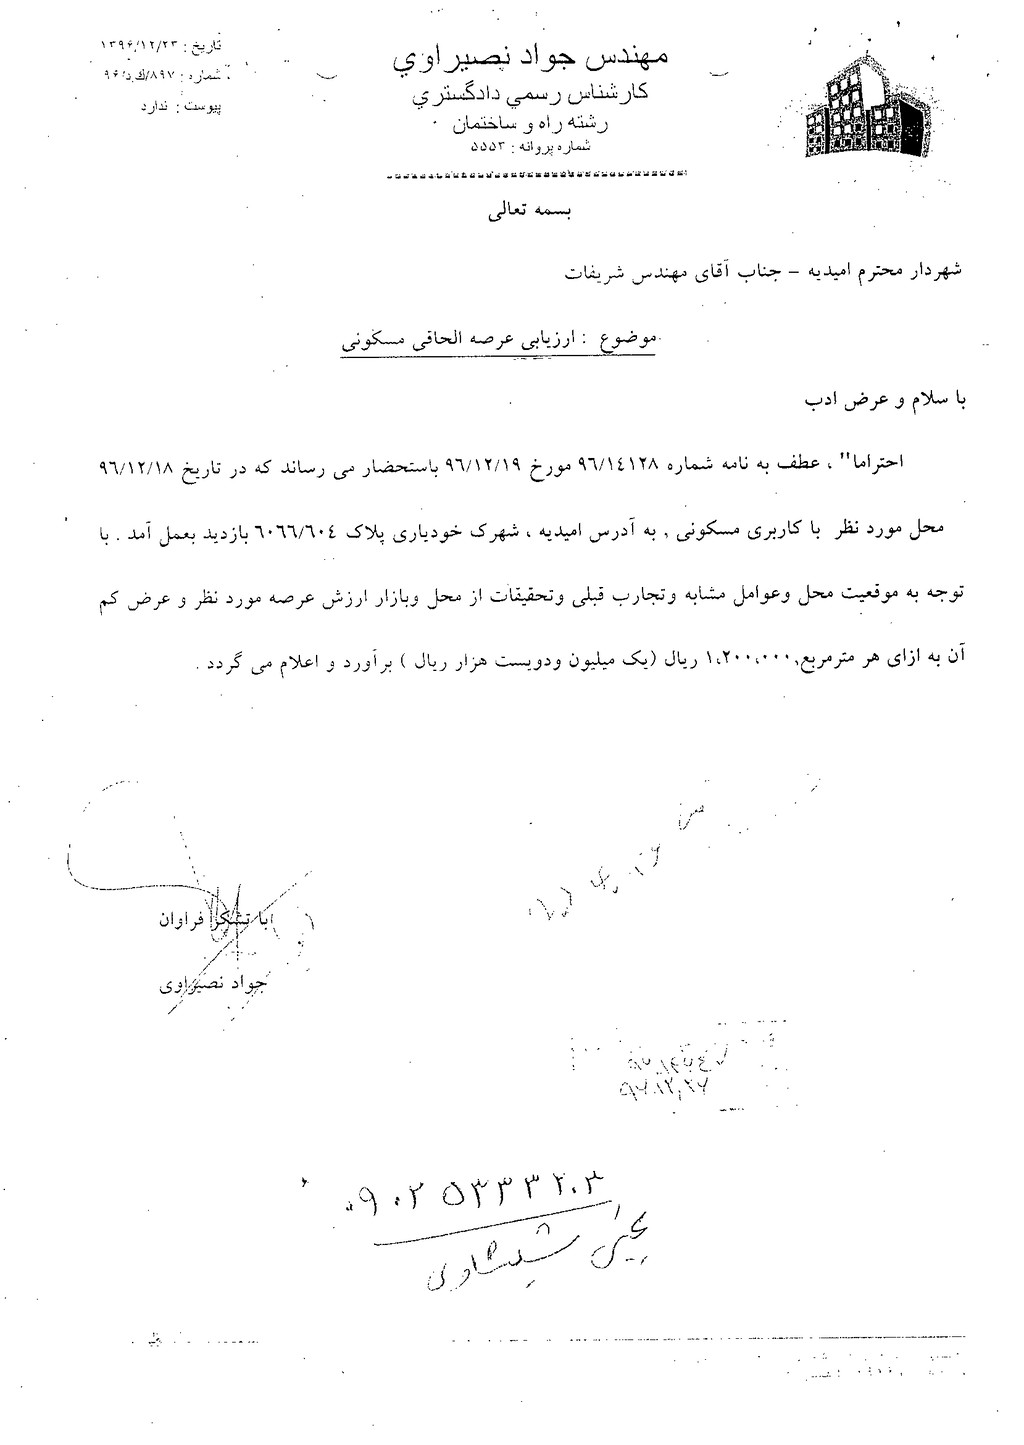 تاریخ : ۱۳۹۶/۱۲/۲۳
شماره : ۸۹۷/ك.د/۹۶
پیوست : ندارد
مهندس جواد نصیراوي
كارشناس رسمي دادگستري
رشته راه و ساختمان
شماره پروانه : ۵۵۵۳
بسمه تعالی
شهردار محترم امیدیه – جناب آقای مهندس شریفات
موضوع : ارزیابی عرصه الحاقی مسکونی
با سلام و عرض ادب
احتراما" ، عطف به نامه شماره ۹۶/۱٤۱۲۸ مورخ ۹٦/۱۲/۱۹ باستحضار می رساند که در تاریخ ۹٦/۱۲/۱۸
محل مورد نظر با کاربری مسکونی , به آدرس امیدیه ، شهرک خودیاری پلاک ٦۰٦٦/٦۰٤ بازدید بعمل آمد . با
توجه به موقعیت محل وعوامل مشابه وتجارب قبلی وتحقیقات از محل وبازار ارزش عرصه مورد نظر و عرض کم
آن به ازای هر مترمربع,۱،۲۰۰،۰۰۰ ریال (یک میلیون ودویست هزار ریال ) برآورد و اعلام می گردد .
با تشکر فراوان
جواد نصیراوی
۰۹۰۲۵۳۳۳۲۰۳